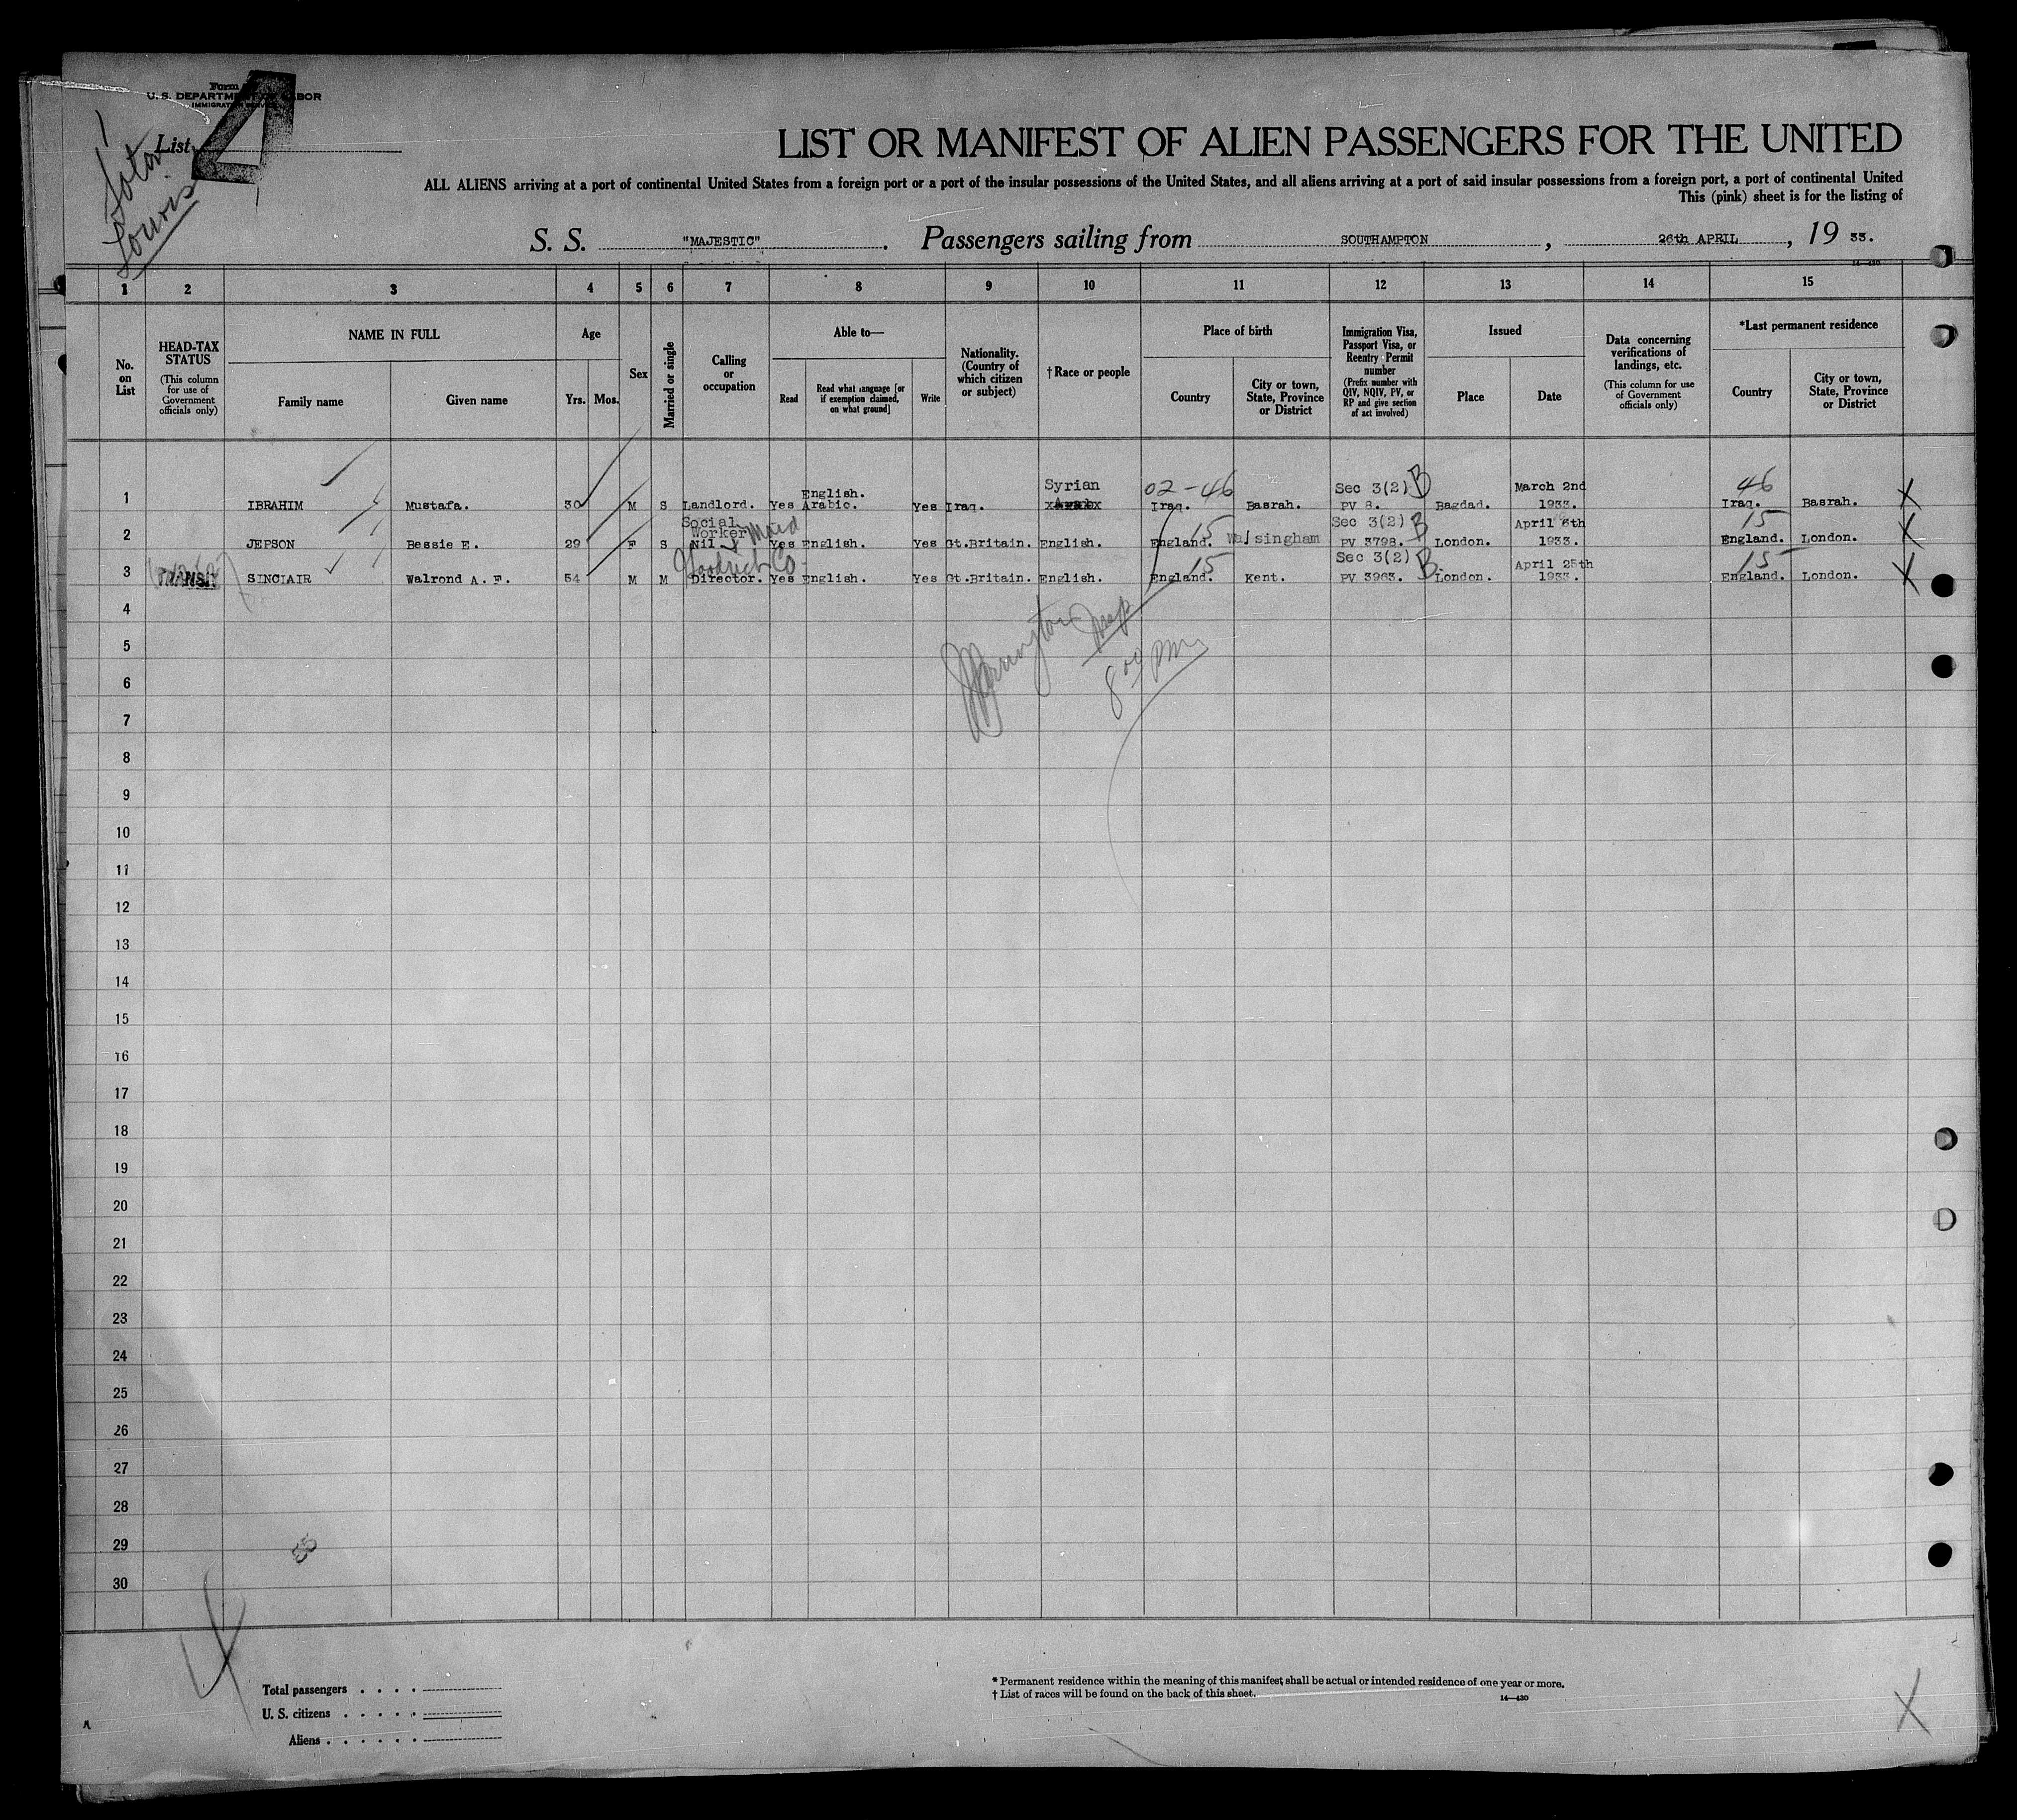 Form
U. S. DEPARTMENT OF LABOR
IMMIGRATION SERVICE
List
LIST OR MANIFEST OF ALIEN PASSENGERS FOR THE UNITED
ALL ALIENS arriving at a port of continental United States from a foreign port or a port of the insular possessions of the United States, and all aliens arriving at a port of said insular possessions from a foreign port, a port of continental United
This (pink) sheet is for the listing of
S. S. "MAJESTIC". Passengers sailing from SOUTHAMPTON, 26th APRIL, 19 33.
14—430
1 2 3 4 5 6 7 8 9 10 11 12 13 14 15
No. on List
HEAD-TAX STATUS
(This column for use of Government officials only)
NAME IN FULL
Family name
Given name
Age
Yrs. Mos.
Sex
Married or single
Calling or occupation
Able to—
Read
Read what language [or if exemption claimed, on what ground]
Write
Nationality. (Country of which citizen or subject)
†Race or people
Place of birth
Country
City or town, State, Province or District
Immigration Visa, Passport Visa, or Reentry Permit number
(Prefix number with QIV, NQIV, PV, or RP and give section of act involved)
Issued
Place
Date
Data concerning verifications of landings, etc.
(This column for use of Government officials only)
*Last permanent residence
Country
City or town, State, Province or District
Syrian 02-46 Sec 3(2) B March 2nd 46
English.
1 IBRAHIM Mustafa. 30 M S Landlord. Yes Arabic. Yes Iraq. Iraq. Basrah. PV 8. Bagdad. 1933. Iraq. Basrah. X
Social Worker Maid 15 Sec 3(2) B April 6th 15
2 JEPSON Bessie E. 29 F S Nil Yes English. Yes Gt.Britain. English. England. Walsingham PV 3798. London. 1933. England. London. X
Goodrich Co 15 Sec 3(2) B April 25th 15
3 TRANSIT SINCIAIR Walrond A. F. 54 M M Director. Yes English. Yes Gt.Britain. English. England. Kent. PV 3963. London. 1933. England. London. X
4
5
8 00 PM
6
7
8
9
10
11
12
13
14
15
16
17
18
19
20
21
22
23
24
25
26
27
28
29
30
Total passengers
U. S. citizens
Aliens
* Permanent residence within the meaning of this manifest shall be actual or intended residence of one year or more.
† List of races will be found on the back of this sheet.
14—430
X